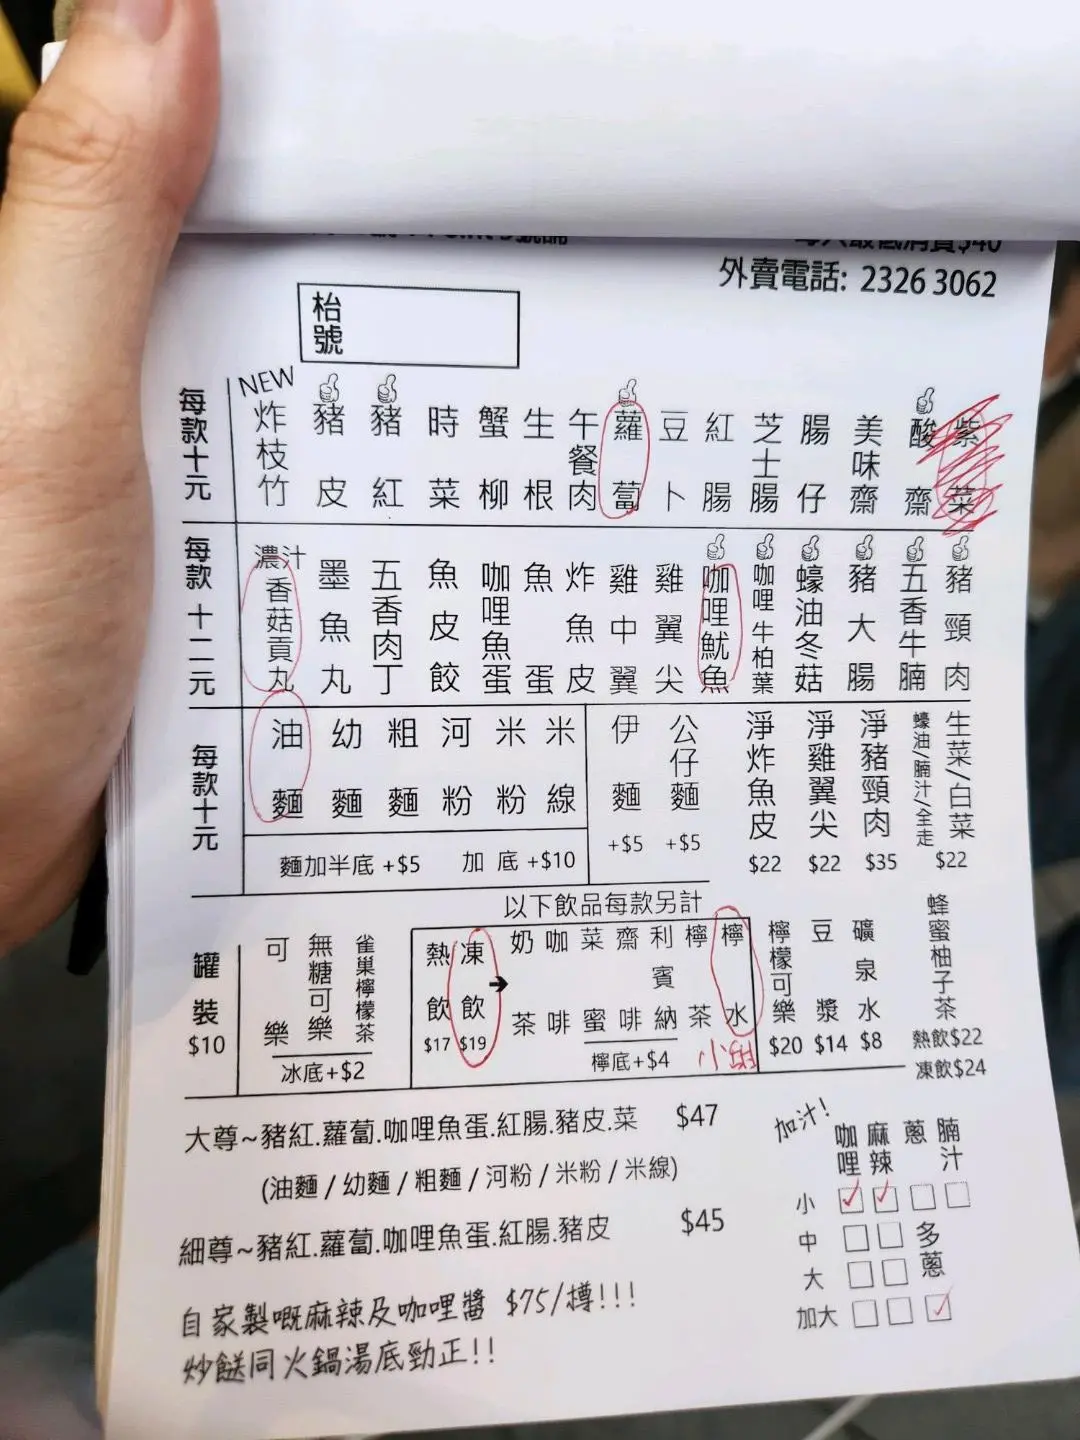 外賣電話: 2326 3062
枱號
每款十元
NEW
炸枝竹
豬皮
豬紅
時菜
蟹柳
生根
午餐肉
蘿蔔
豆卜
紅腸
芝士腸
腸仔
美味齋
酸齋
紫菜
每款十二元
濃汁香菇貢丸
墨魚丸
五香肉丁
魚皮餃
咖哩魚蛋
魚蛋
炸魚皮
雞中翼
雞翼尖
咖哩魷魚
咖哩牛柏葉
蠔油冬菇
豬大腸
五香牛腩
豬頸肉
每款十元
油麵
幼麵
粗麵
河粉
米粉
米線
麵加半底 +$5 加底 +$10
伊麵 +$5
公仔麵 +$5
淨炸魚皮 $22
淨雞翼尖 $22
淨豬頸肉 $35
蠔油/腩汁/全走
生菜/白菜 $22
以下飲品每款另計
罐裝 $10
可樂
無糖可樂
雀巢檸檬茶
冰底+$2
熱飲 $17
凍飲 $19
➔
奶茶
咖啡
菜蜜
齋啡
利賓納
檸茶
檸水
檸底+$4
檸檬可樂 $20
豆漿 $14
礦泉水 $8
蜂蜜柚子茶
熱飲$22
凍飲$24
大尊~豬紅.蘿蔔.咖哩魚蛋.紅腸.豬皮.菜 $47
(油麵 / 幼麵 / 粗麵 / 河粉 / 米粉 / 米線)
細尊~豬紅.蘿蔔.咖哩魚蛋.紅腸.豬皮 $45
自家製嘅麻辣及咖哩醬 $75/樽!!!
炒餸同火鍋湯底勁正!!
加汁!
咖哩 麻辣 蔥 腩汁
小
中 多蔥
大
加大